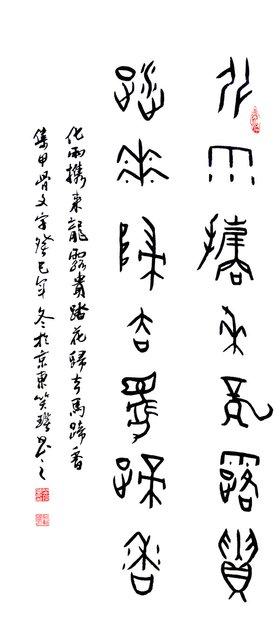 化雨携来龍露貴
踏花歸去馬蹄香
化雨携来龍露貴踏花歸去馬蹄香
集甲骨文字癸巳年冬於京東笑